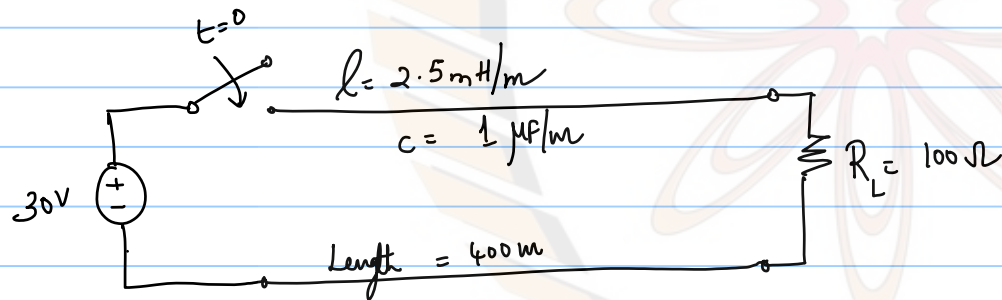 t=0
l = 2.5 mH/m
c = 1 μF/m
30V
+
-
R_L = 100 Ω
Length = 400 m